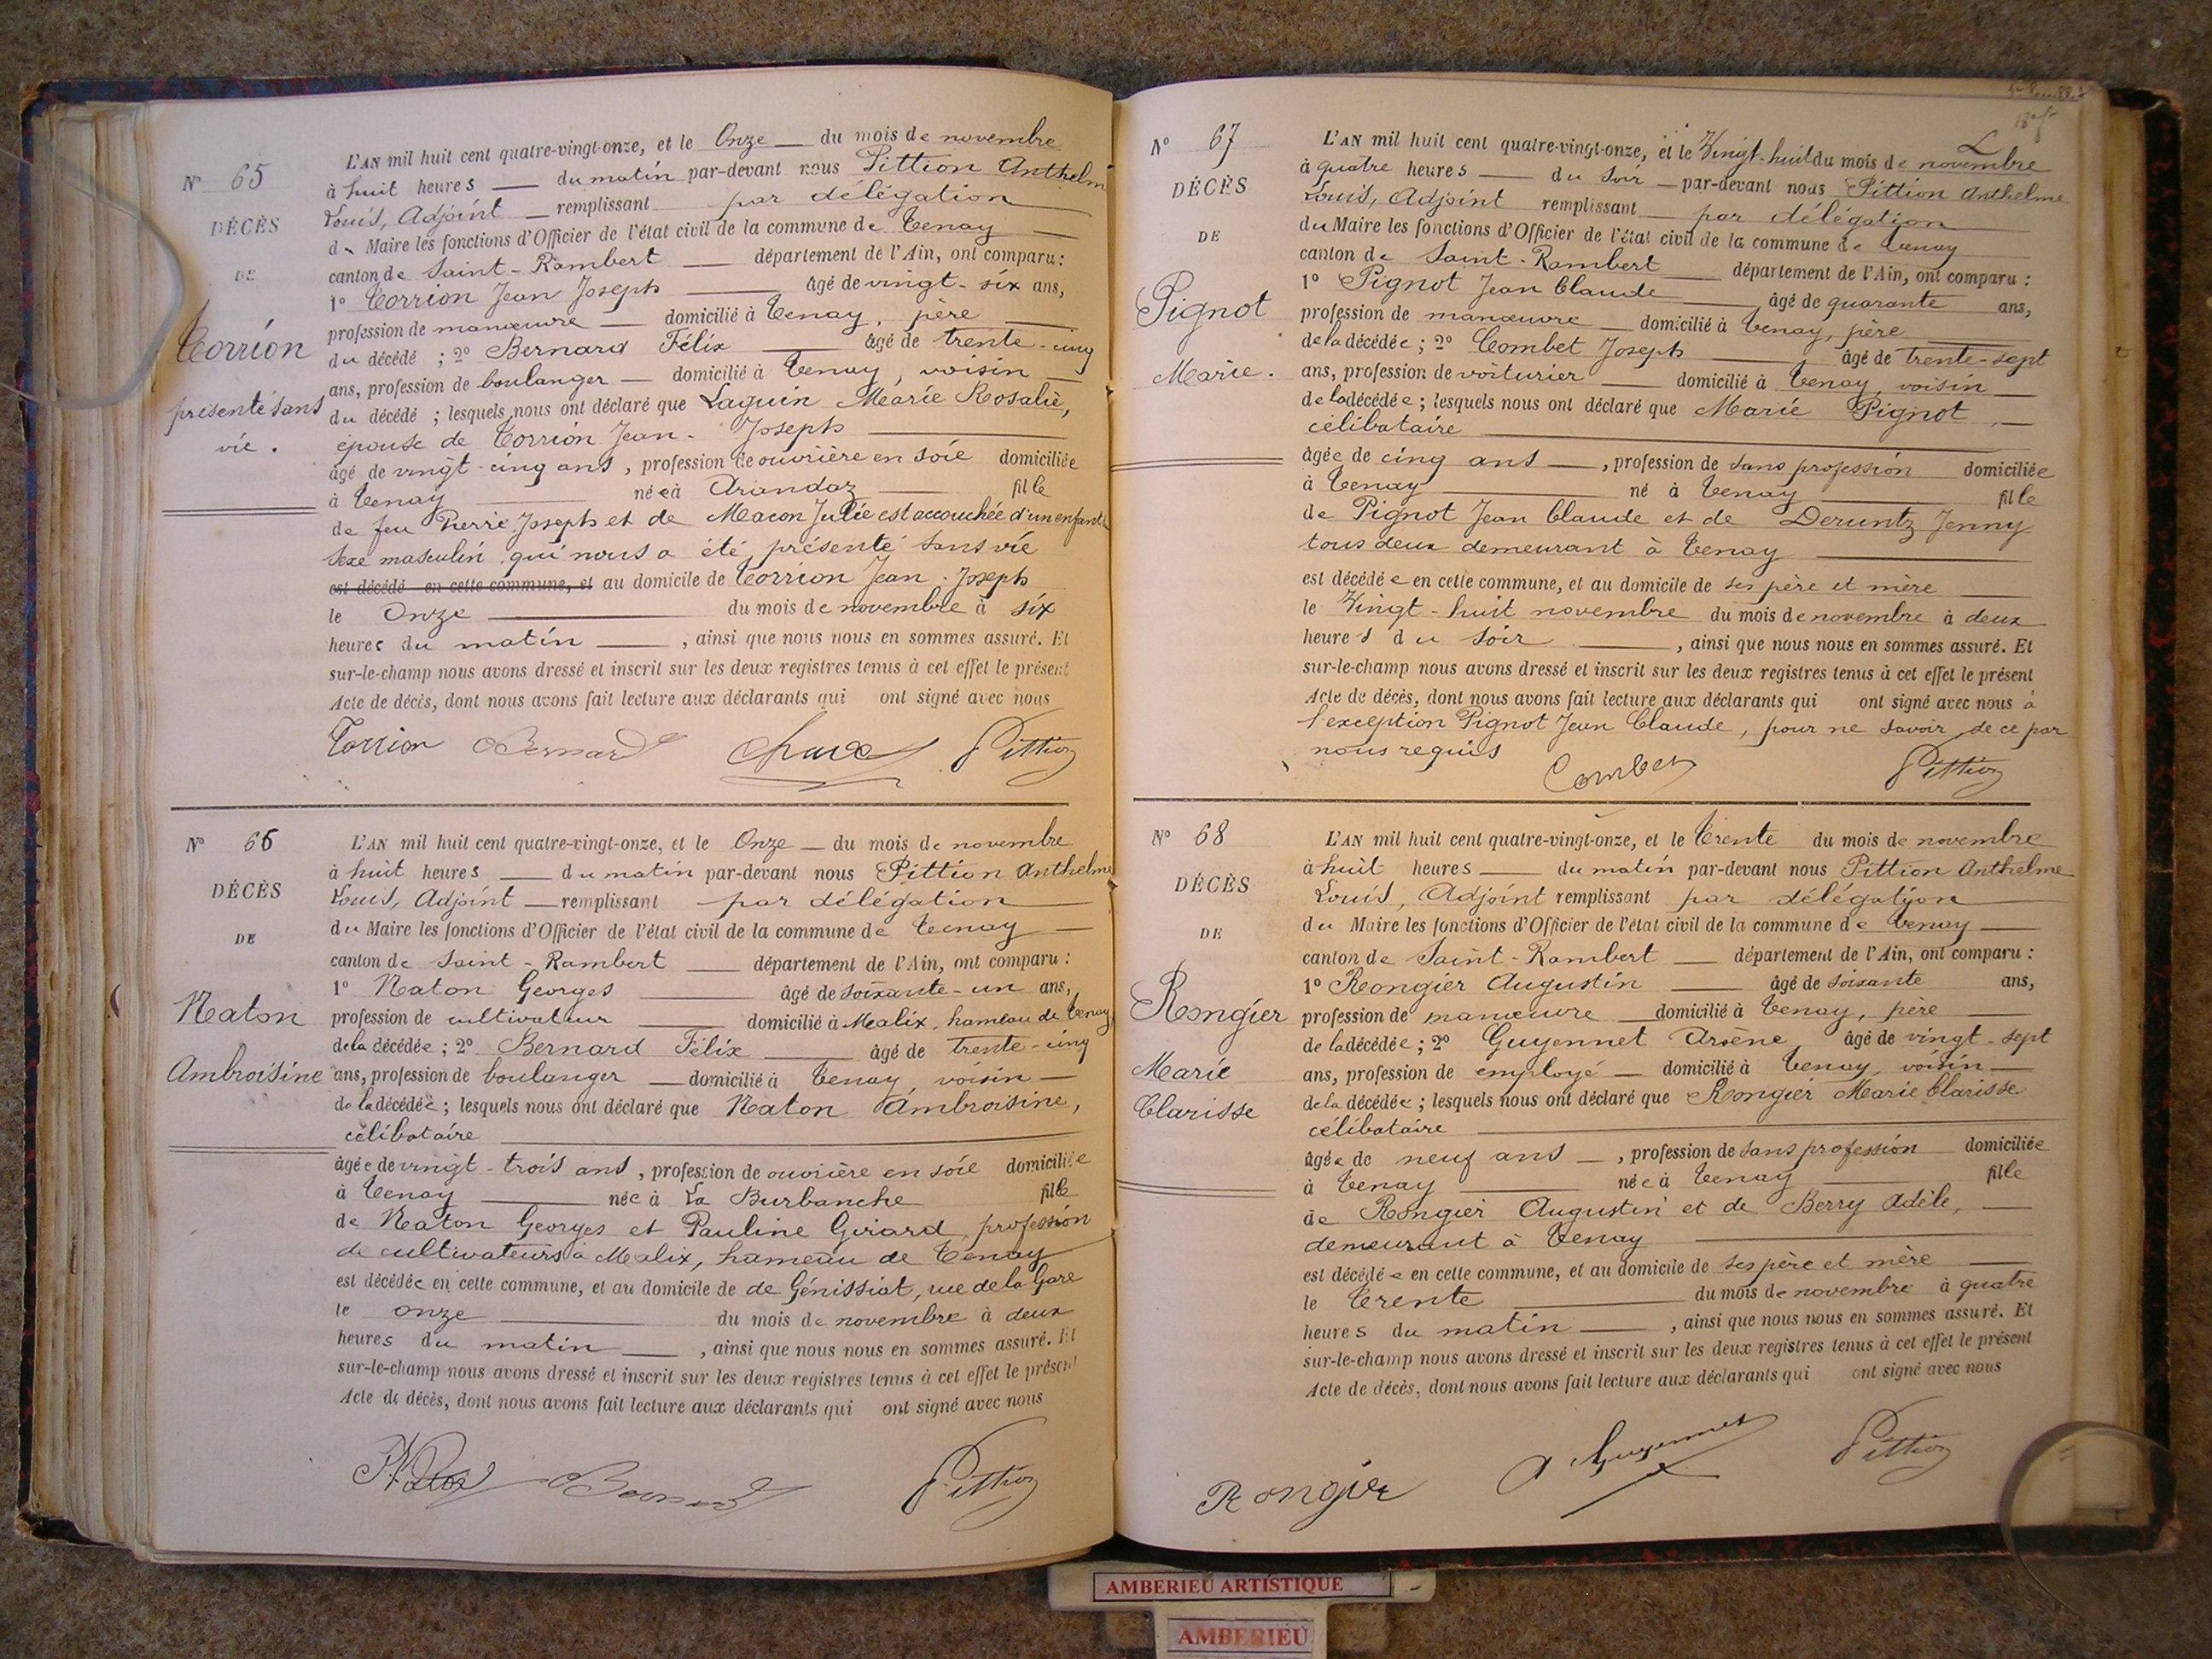 N° 65
DÉCÈS
DE
Torrion
présenté sans
vie.
L'AN mil huit cent quatre-vingt-onze, et le Onze du mois de novembre
à huit heures du matin par-devant nous Pittion Anthelme
Louis, Adjoint remplissant par délégation
du Maire les fonctions d'Officier de l'état civil de la commune de Tenay
canton de Saint-Rambert département de l'Ain, ont comparu :
1° Torrion Jean Joseph âgé de vingt-six ans,
profession de manœuvre domicilié à Tenay, père
du décédé ; 2° Bernard Félix âgé de trente-cinq
ans, profession de boulanger domicilié à Tenay, voisin
du décédé ; lesquels nous ont déclaré que Laguin Marie Rosalie,
épouse de Torrion Jean-Joseph
âgé de vingt-cinq ans, profession de ouvrière en soie domiciliée
à Tenay née à Arandaz fille
de feu Pierre Joseph et de Macon Julie est accouchée d'un enfant
sexe masculin qui nous a été présenté sans vie
est décédé en cette commune, et au domicile de Torrion Jean-Joseph
le Onze du mois de novembre à six
heures du matin, ainsi que nous nous en sommes assuré. Et
sur-le-champ nous avons dressé et inscrit sur les deux registres tenus à cet effet le présent
Acte de décès, dont nous avons fait lecture aux déclarants qui ont signé avec nous
Torrion Bernard Pittion
N° 66
DÉCÈS
DE
Naton
Ambroisine
L'AN mil huit cent quatre-vingt-onze, et le Onze du mois de novembre
à huit heures du matin par-devant nous Pittion Anthelme
Louis, Adjoint remplissant par délégation
du Maire les fonctions d'Officier de l'état civil de la commune de Tenay
canton de Saint-Rambert département de l'Ain, ont comparu :
1° Naton Georges âgé de soixante-un ans,
profession de cultivateur domicilié à Malix, hameau de Tenay
de la décédée ; 2° Bernard Félix âgé de trente-cinq
ans, profession de boulanger domicilié à Tenay, voisin
de la décédée ; lesquels nous ont déclaré que Naton Ambroisine,
célibataire
âgée de vingt-trois ans, profession de ouvrière en soie domiciliée
à Tenay née à La Burbanche fille
de Naton Georges et Pauline Girard, profession
de cultivateurs à Malix, hameau de Tenay
est décédée en cette commune, et au domicile de de Génissiat, rue de la Gare
le onze du mois de novembre à deux
heures du matin, ainsi que nous nous en sommes assuré. Et
sur-le-champ nous avons dressé et inscrit sur les deux registres tenus à cet effet le présent
Acte de décès, dont nous avons fait lecture aux déclarants qui ont signé avec nous
Naton Bernard Pittion
N° 67
DÉCÈS
DE
Pignot
Marie.
L'AN mil huit cent quatre-vingt-onze, et le Vingt-huit du mois de novembre
à quatre heures du soir par-devant nous Pittion Anthelme
Louis, Adjoint remplissant par délégation
du Maire les fonctions d'Officier de l'état civil de la commune de Tenay
canton de Saint-Rambert département de l'Ain, ont comparu :
1° Pignot Jean Claude âgé de quarante ans,
profession de manœuvre domicilié à Tenay, père
de la décédée ; 2° Combet Joseph âgé de trente-sept
ans, profession de voiturier domicilié à Tenay, voisin
de la décédée ; lesquels nous ont déclaré que Marie Pignot,
célibataire
âgée de cinq ans, profession de sans profession domiciliée
à Tenay né à Tenay fille
de Pignot Jean Claude et de Deruntz Jenny
tous deux demeurant à Tenay
est décédée en cette commune, et au domicile de ses père et mère
le Vingt-huit novembre du mois de novembre à deux
heures du soir, ainsi que nous nous en sommes assuré. Et
sur-le-champ nous avons dressé et inscrit sur les deux registres tenus à cet effet le présent
Acte de décès, dont nous avons fait lecture aux déclarants qui ont signé avec nous à
l'exception Pignot Jean Claude, pour ne savoir de ce par
nous requis
Combet Pittion
N° 68
DÉCÈS
DE
Rongier
Marie
Clarisse
L'AN mil huit cent quatre-vingt-onze, et le Trente du mois de novembre
à huit heures du matin par-devant nous Pittion Anthelme
Louis, Adjoint remplissant par délégation
du Maire les fonctions d'Officier de l'état civil de la commune de Tenay
canton de Saint-Rambert département de l'Ain, ont comparu :
1° Rongier Augustin âgé de soixante ans,
profession de manœuvre domicilié à Tenay, père
de la décédée ; 2° Guyennet Arsène âgé de vingt-sept
ans, profession de employé domicilié à Tenay, voisin
de la décédée ; lesquels nous ont déclaré que Rongier Marie Clarisse
célibataire
âgée de neuf ans, profession de sans profession domiciliée
à Tenay née à Tenay fille
de Rongier Augustin et de Berry Adèle,
demeurant à Tenay
est décédée en cette commune, et au domicile de ses père et mère
le Trente du mois de novembre à quatre
heures du matin, ainsi que nous nous en sommes assuré. Et
sur-le-champ nous avons dressé et inscrit sur les deux registres tenus à cet effet le présent
Acte de décès, dont nous avons fait lecture aux déclarants qui ont signé avec nous
Rongier A Guyennet Pittion
AMBERIEU ARTISTIQUE
AMBERIEU